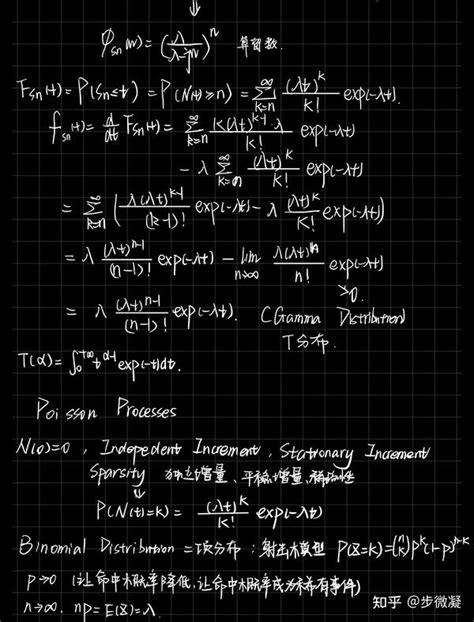 ↓
φ_{Sn}(w) = (λ/(λ-jw))^n 算留数.
F_{Sn}(t) = P(Sn ≤ t) = P(N(t) ≥ n) = Σ_{k=n}^{∞} (λt)^k/k! exp(-λt).
f_{Sn}(t) = d/dt F_{Sn}(t) = Σ_{k=n}^{∞} k(λt)^{k-1}·λ/k! exp(-λt)
- λ Σ_{k=n}^{∞} (λt)^k/k! exp(-λt)
= Σ_{k=n}^{∞} (λ(λt)^{k-1}/(k-1)! exp(-λt) - λ (λt)^k/k! exp(-λt))
= λ (λt)^{n-1}/(n-1)! exp(-λt) - lim_{n→∞} λ(λt)^n/n! exp(-λt)
→0.
= λ (λt)^{n-1}/(n-1)! exp(-λt). (Gamma Distribution)
Γ分布.
Γ(α) = ∫_0^{+∞} t^{α-1} exp(-t)dt.
Poisson Processes
N(0)=0, Indepedent Increment, Stationary Increment
Sparsity 独立增量、平稳增量、稀疏性
↓
P(N(t)=k) = (λt)^k/k! exp(-λt)
Binomial Distribution 二项分布: 射击模型 P(Z=k) = (n k) p^k (1-p)^{n-k}
p→0 (让命中概率降低,让命中概率成为稀有事件)
n→∞. np = E(Z) = λ.
知乎 @步微凝